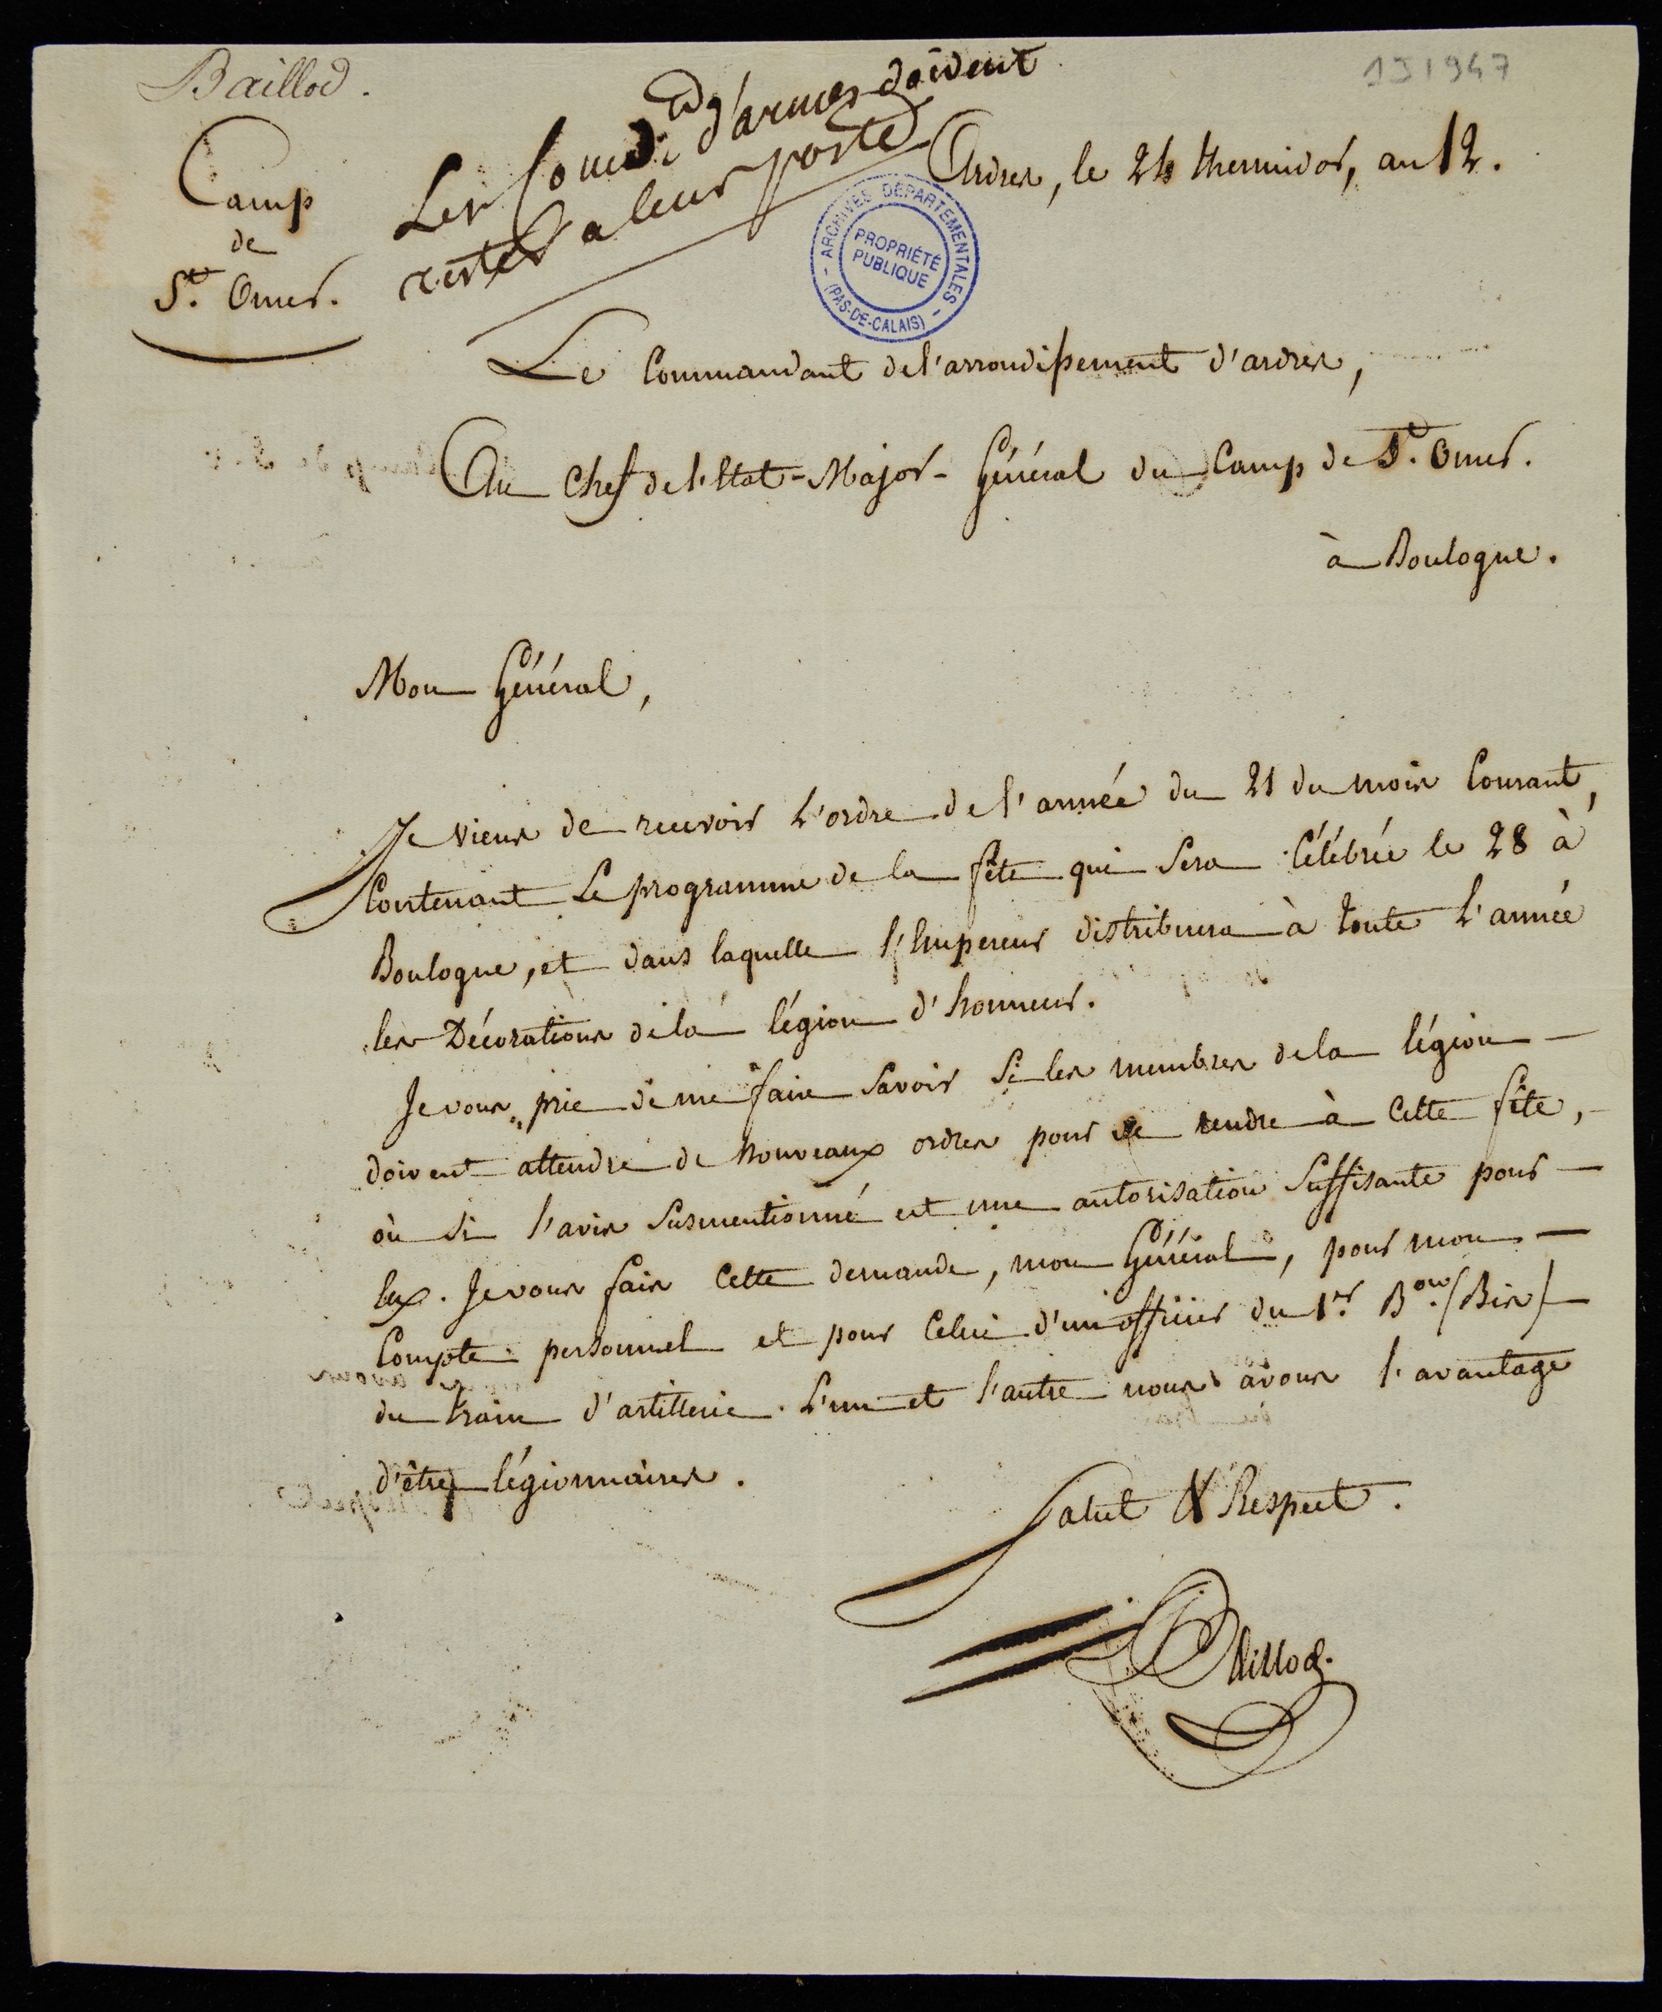 Baillod.
1J1947
Camp
de
St. Omer.
Les Comdts d'armes doivent
rester a leur poste
Ardres, le 24 thermidor, an 12.
ARCHIVES DÉPARTEMENTALES
(PAS-DE-CALAIS)
PROPRIÉTÉ
PUBLIQUE
Le Commandant de l'arrondissement d'ardres,
Au Chef de l'Etat-Major-Général du Camp de St. Omer.
à Boulogne.
Mon Général,
Je viens de recevoir l'ordre de l'armée du 21 du mois Courant,
Contenant Le programme de la fête qui Sera Célébrée le 28 à
Boulogne, et dans laquelle l'Empereur distribuera à toute l'armée
les Décorations de la légion d'honneur.
Je vous prie de me faire Savoir Si les membres de la légion
doivent attendre de Nouveaux ordres pour se rendre à Cette fête,
où Si l'avis Susmentionné est une autorisation Suffisante pour
Eux. Je vous fais Cette demande, mon Général, pour mon
Compte personnel et pour Celui d'un officier du 1er. Bon. (Bis)
du train d'artillerie. L'un et l'autre nous avons l'avantage
d'être légionnaires.
Salut & Respect.
Baillod.